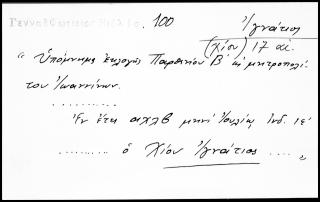 Γενναδίου Βιβλιοθ. 100 Ἰγνάτιος
(Χίου) 17 αἰ.
"Ὑπόμνημα ἐκλογῆς Παρθενίου Β' εἰς μητροπολί-
του Ἰωαννίνων.
..........
Ἐν ἔτει αχλβ μηνὶ Ἰουλίῳ Ἰνδ. ιε'
........ ὁ Χίου Ἰγνάτιος ....